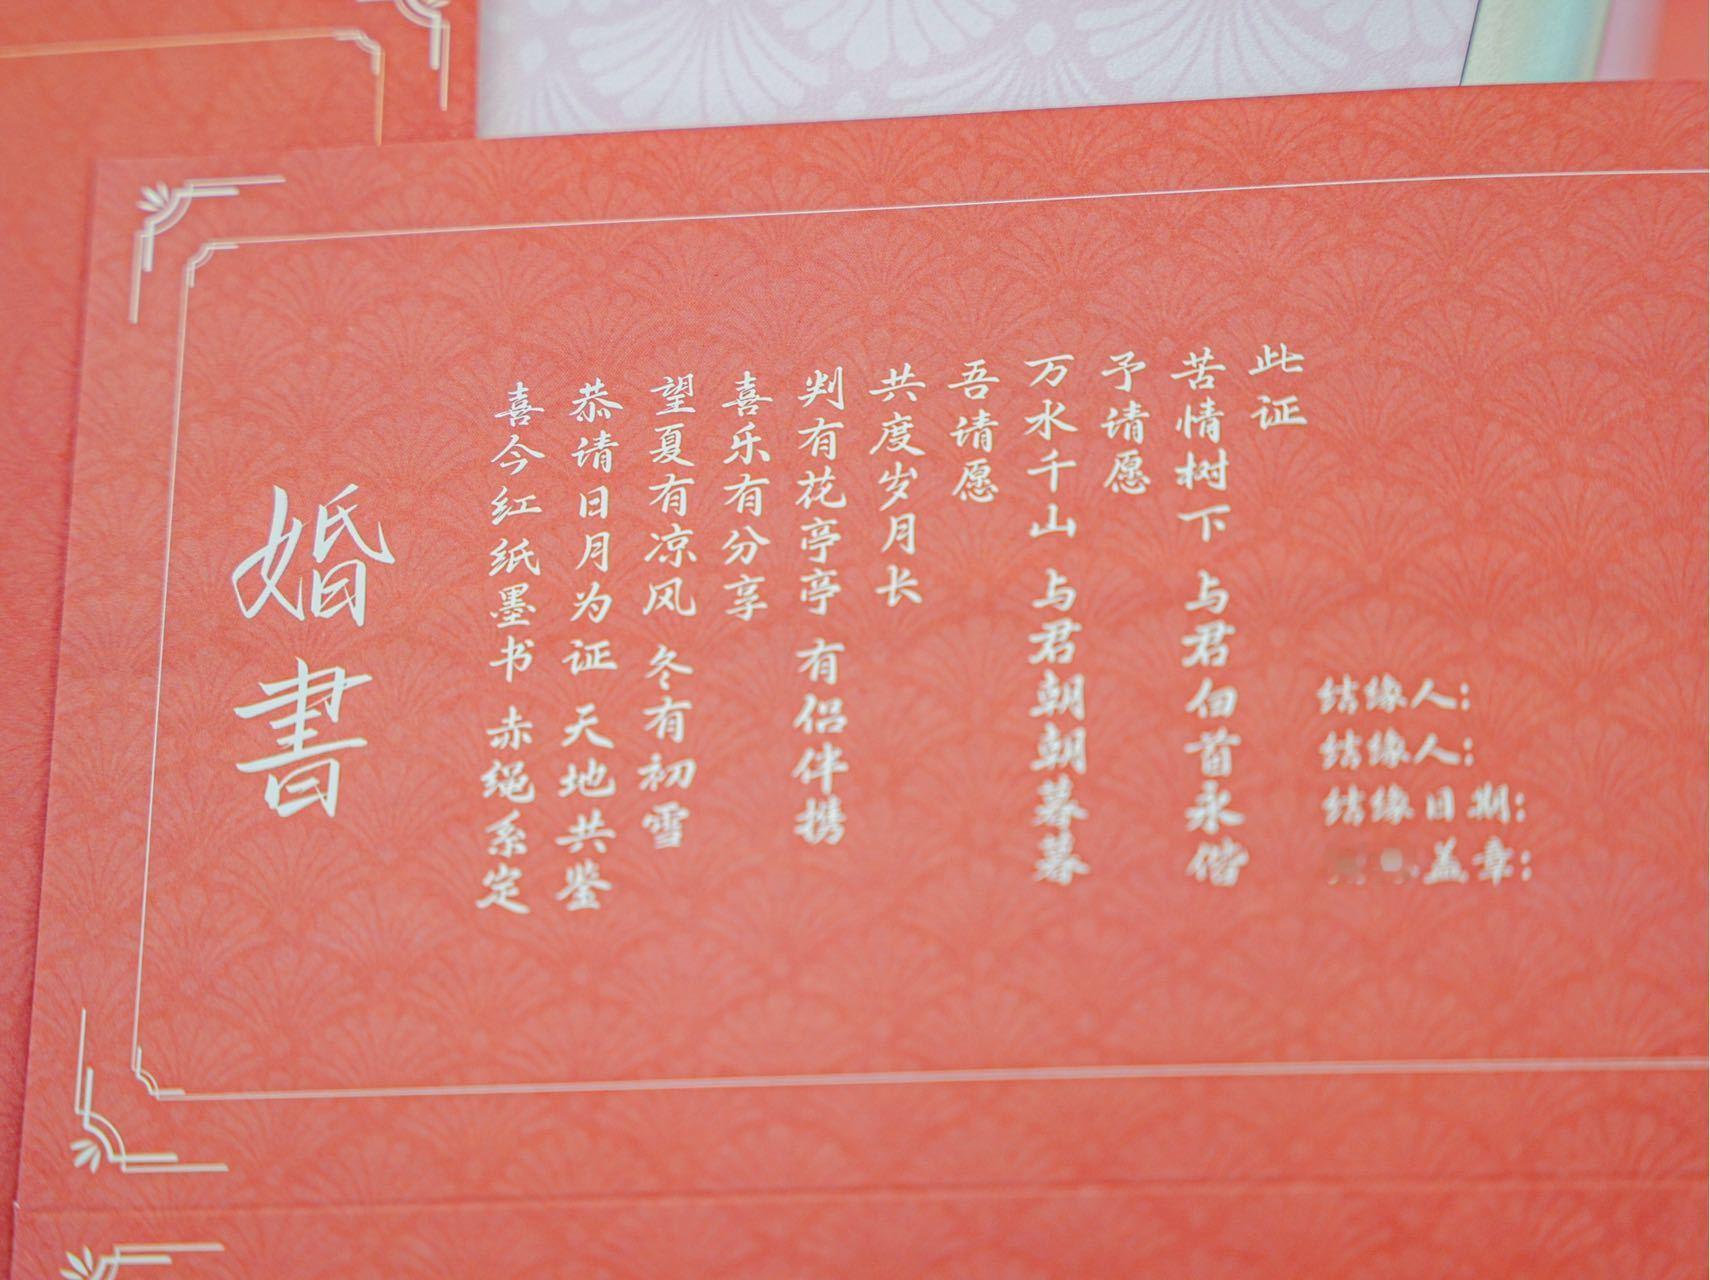 婚書
喜今红纸墨书 赤绳系定
恭请日月为证 天地共鉴
望夏有凉风 冬有初雪
喜乐有分享
判有花亭亭 有侣伴携
共度岁月长
吾请愿
万水千山 与君朝朝暮暮
予请愿
苦情树下 与君白首永偕
此证
结缘人：
结缘人：
结缘日期：
盖章：